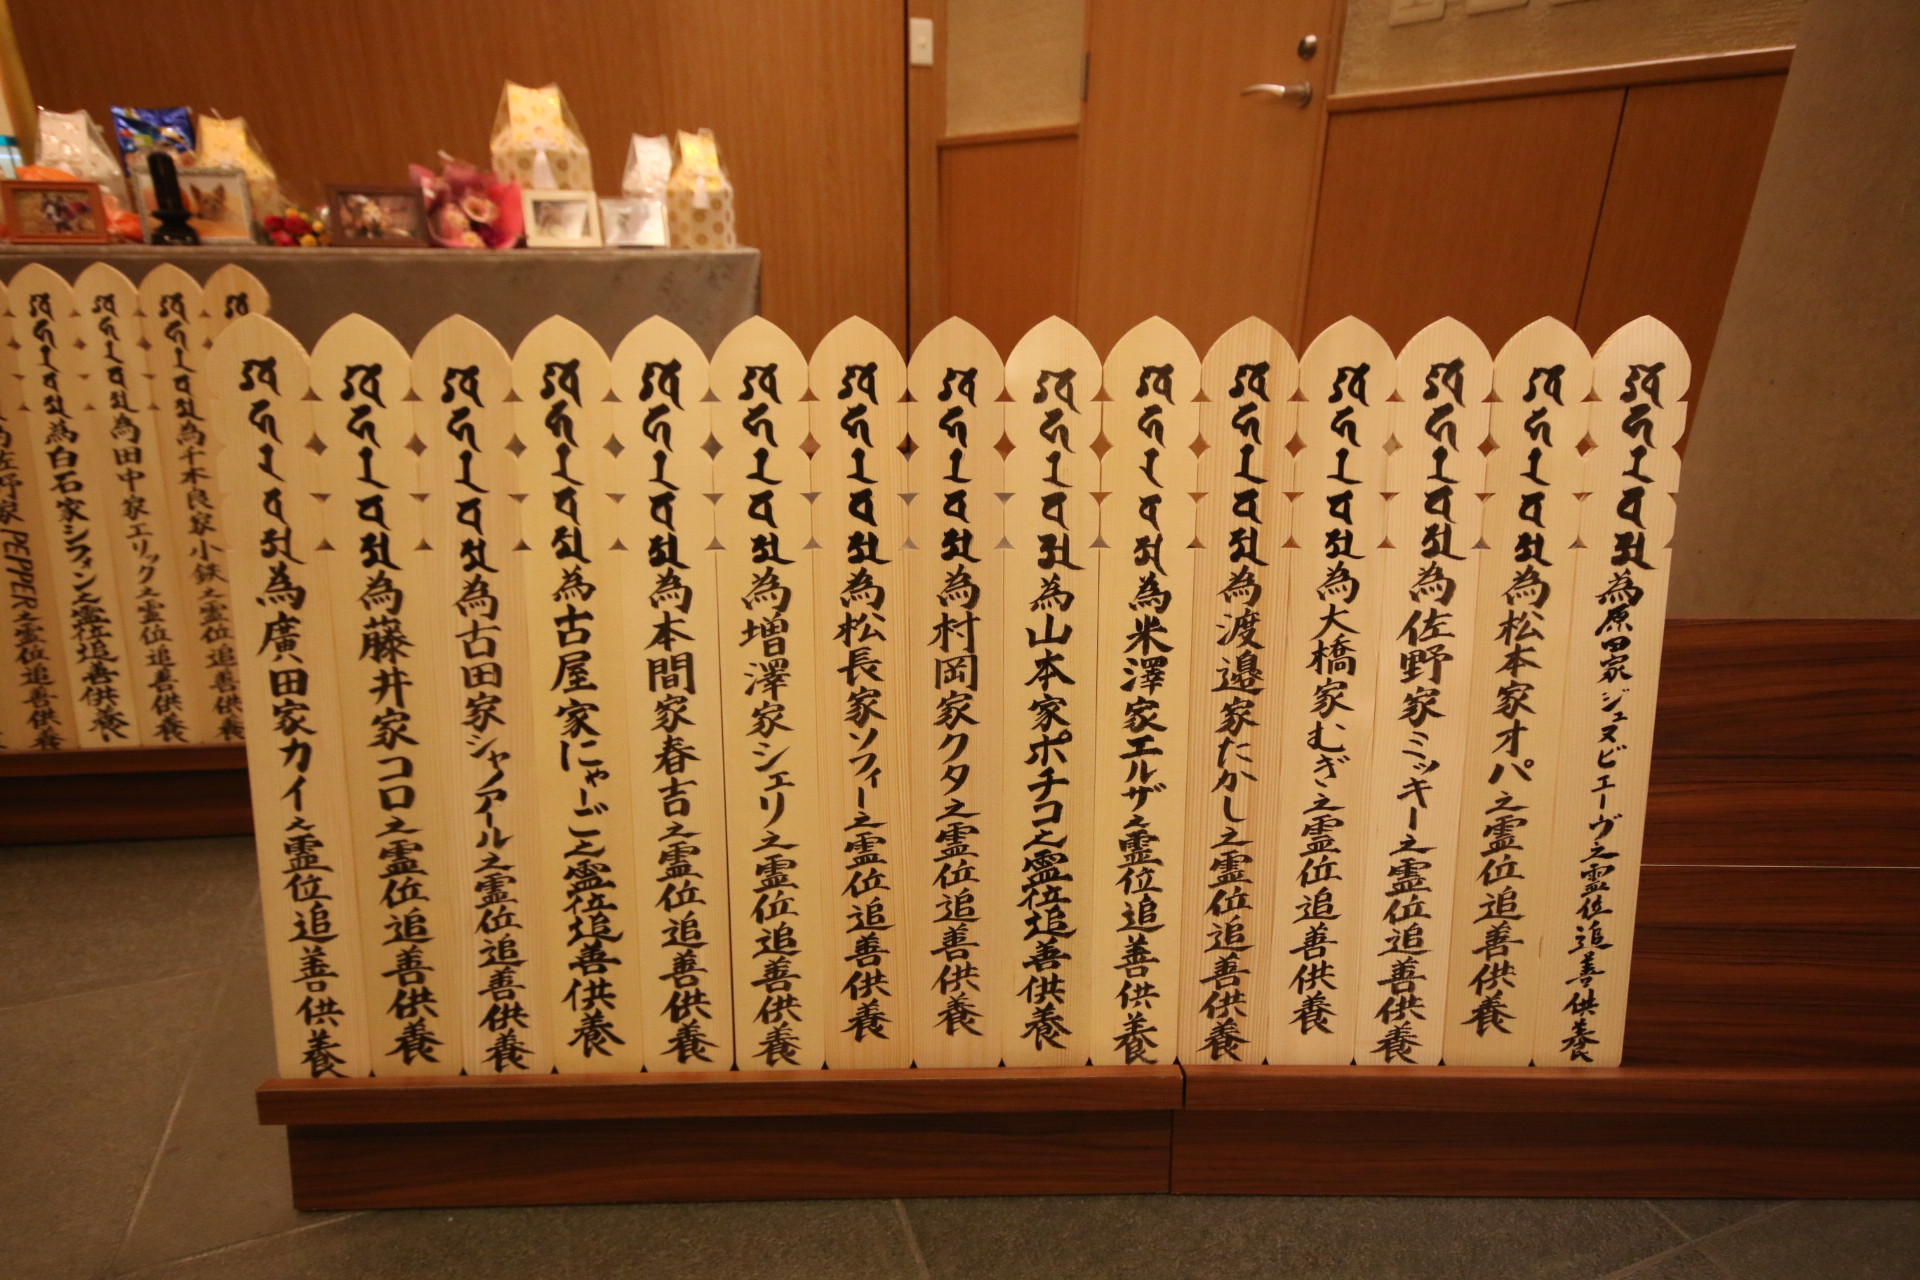 為原田家ジュヌビエーヴ之霊位追善供養
為松本家オパ之霊位追善供養
為佐野家ミッキー之霊位追善供養
為大橋家むぎ之霊位追善供養
為渡邉家たかし之霊位追善供養
為米澤家エルザ之霊位追善供養
為山本家ポチコ之霊位追善供養
為村岡家クタ之霊位追善供養
為松長家ソフィー之霊位追善供養
為増澤家シェリ之霊位追善供養
為本間家春吉之霊位追善供養
為古屋家にゃーご之霊位追善供養
為古田家シャノアール之霊位追善供養
為藤井家ココ之霊位追善供養
為廣田家カイ之霊位追善供養
為千木良家小鉄之霊位追善供養
為田中家エリック之霊位追善供養
為白石家シフォン之霊位追善供養
為佐野家PEPPER之霊位追善供養